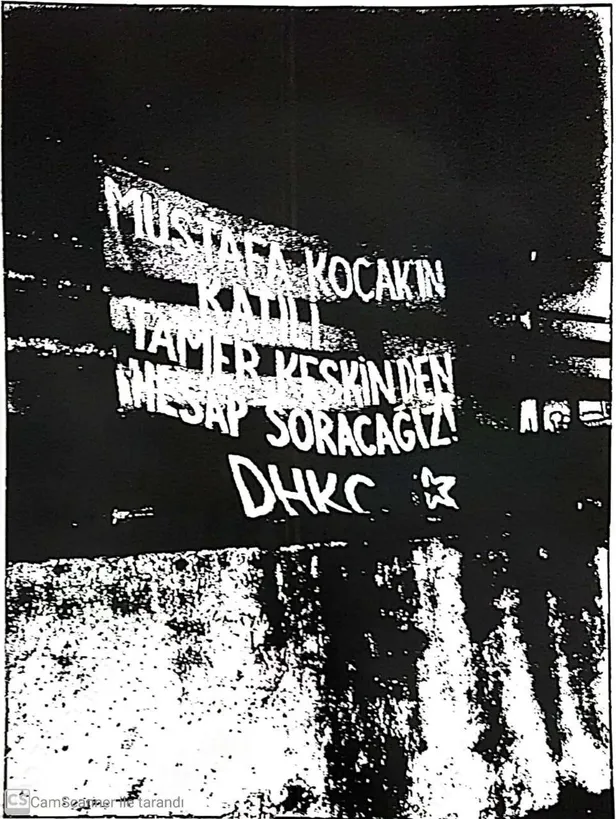 MUSTAFA KOÇAK'IN
KATİLİ
TAMER KESKİN'DEN
HESAP SORACAĞIZ!
DHKC
CS CamScanner ile tarandı